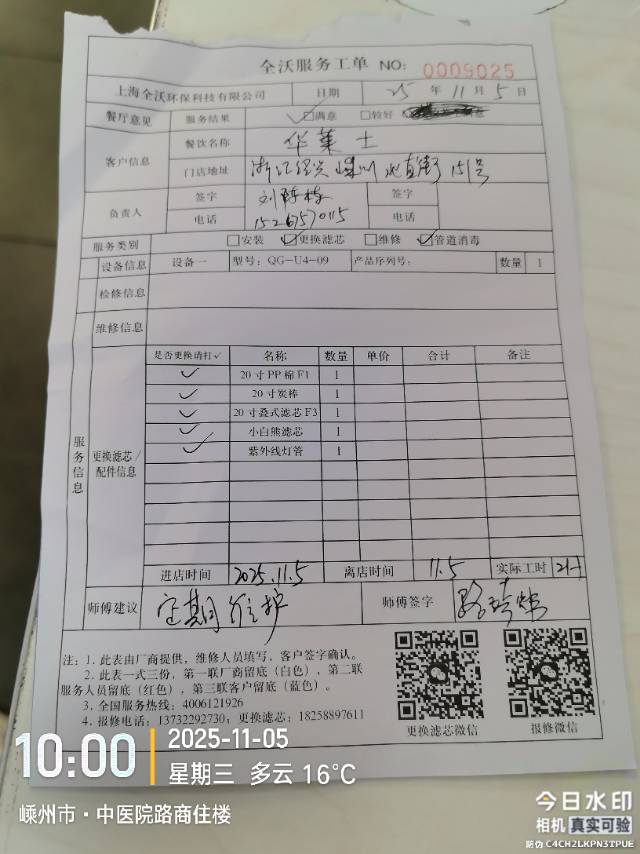 全沃服务工单 NO: 0009025
上海全沃环保科技有限公司 日期 25 年 11 月 5 日
餐厅意见 服务结果 ✓□满意 □较好
客户信息 餐饮名称 华莱士
门店地址 浙江绍兴嵊州北直街151号
负责人 签字 刘 签字
电话 电话
服务类别 □安装 ☑更换滤芯 □维修 ☑管道消毒
设备信息 设备一 型号: QG-U4-09 产品序列号: 数量 1
检修信息
维修信息
服务信息
更换滤芯/配件信息
是否更换请打✓ 名称 数量 单价 合计 备注
✓ 20寸PP棉F1 1
✓ 20寸炭棒 1
✓ 20寸叠式滤芯F3 1
✓ 小白熊滤芯 1
✓ 紫外线灯管 1
进店时间 2025.11.5 离店时间 11.5 实际工时
师傅建议 定期维护 师傅签字
注: 1. 此表由厂商提供, 维修人员填写, 客户签字确认。
2. 此表一式三份, 第一联厂商留底(白色), 第二联
服务人员留底(红色), 第三联客户留底(蓝色)。
3. 全国服务热线: 4006121926
4. 报修电话: 13732292730; 更换滤芯: 18258897611
更换滤芯微信 报修微信
10:00 2025-11-05
星期三 多云 16°C
嵊州市·中医院路商住楼
今日水印
相机 真实可验
防伪 C4CH2LKPN3TPUE